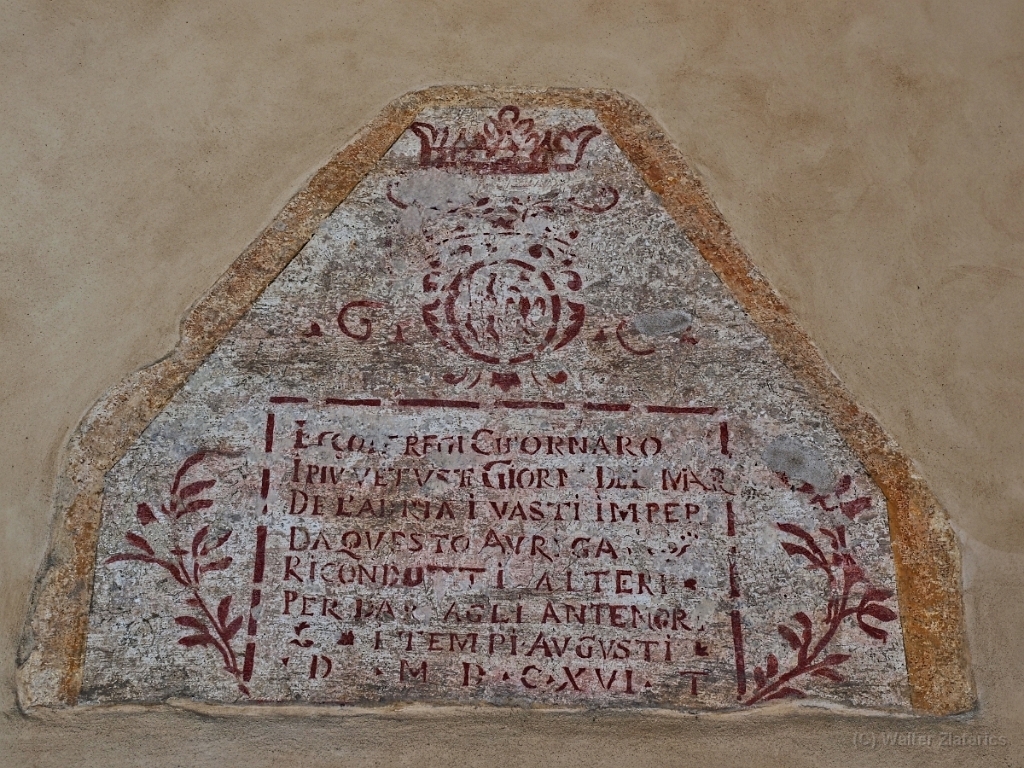 G C
REGI CH'ORNARO
I PIU VETUSTE GIORN DEL MAR
DE L'ADRIA I VASTI IMPEP
DA QVESTO AVRIGA
RICONDUTTI ALTERI
PER DAR AGLI ANTENOR
I TEMPI AVGVSTI
D · M · D · C · XVI · T
(C) Walter Zlatarics